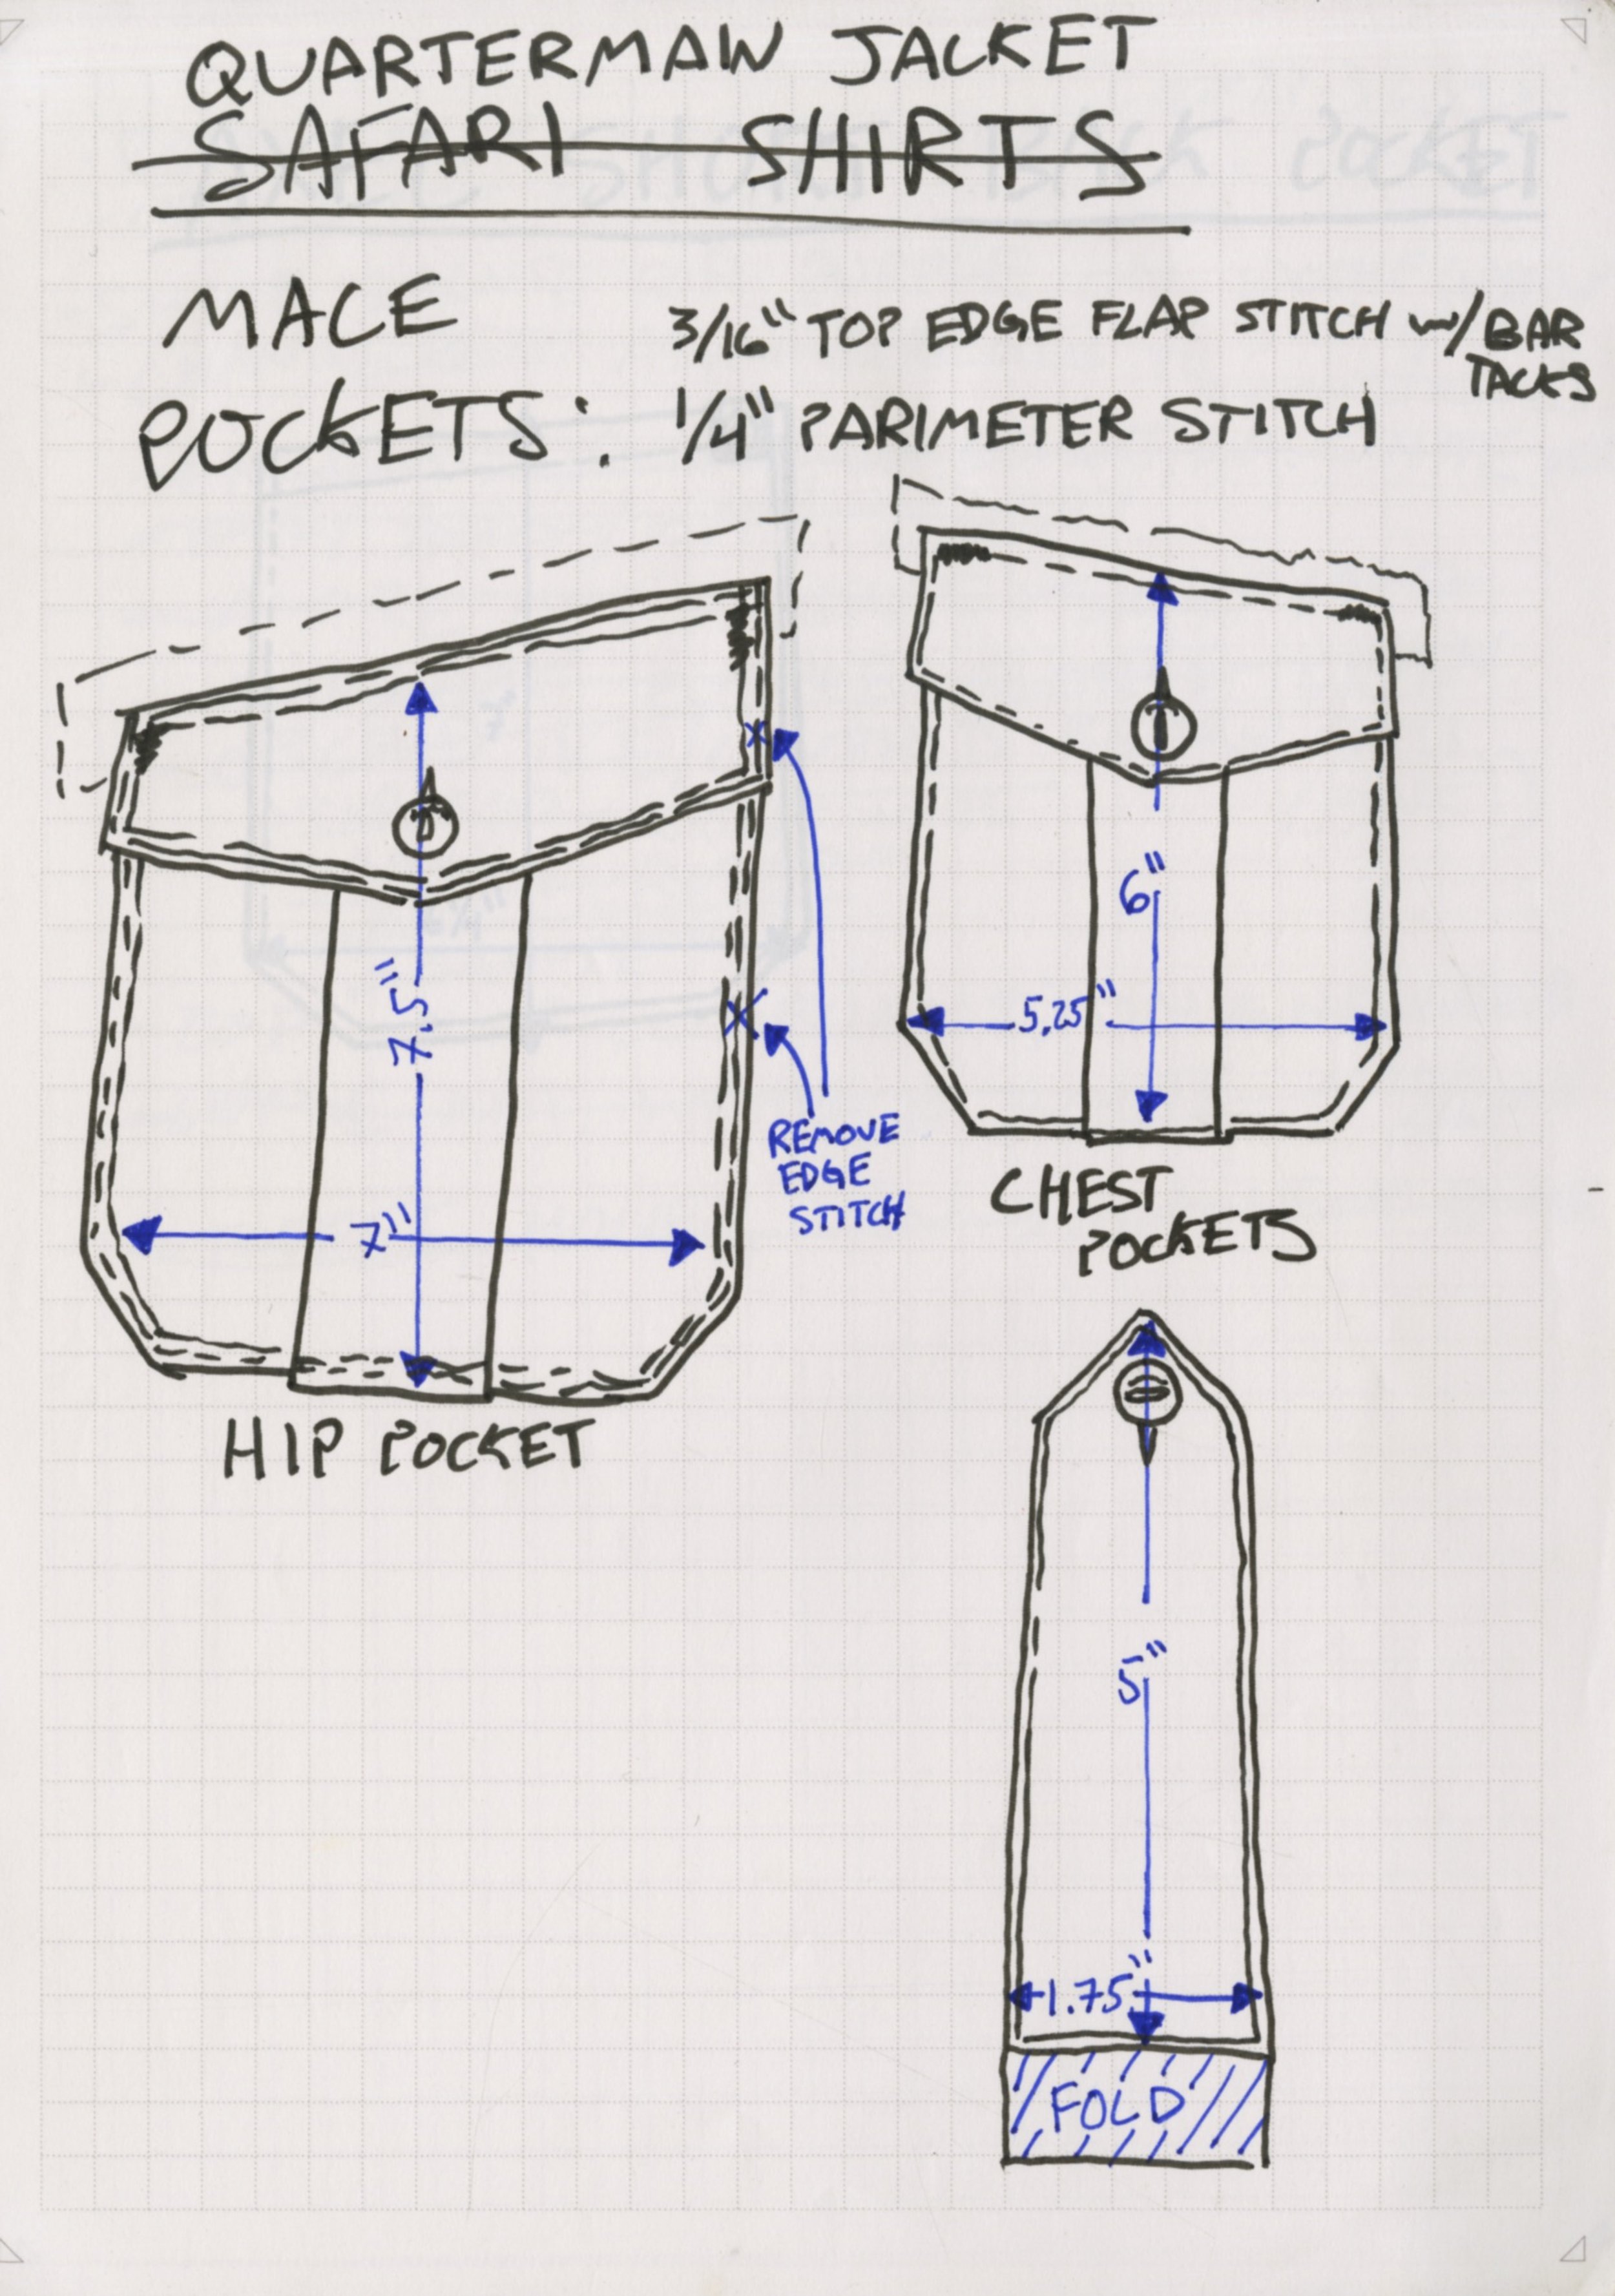 QUARTERMAIN JACKET
SAFARI SHIRTS
MALE
POCKETS:
3/16" TOP EDGE FLAP STITCH w/ BAR
TACKS
1/4" PARIMETER STITCH
7.5"
7"
HIP POCKET
REMOVE
EDGE
STITCH
6"
5.25"
CHEST
POCKETS
5"
1.75"
FOLD